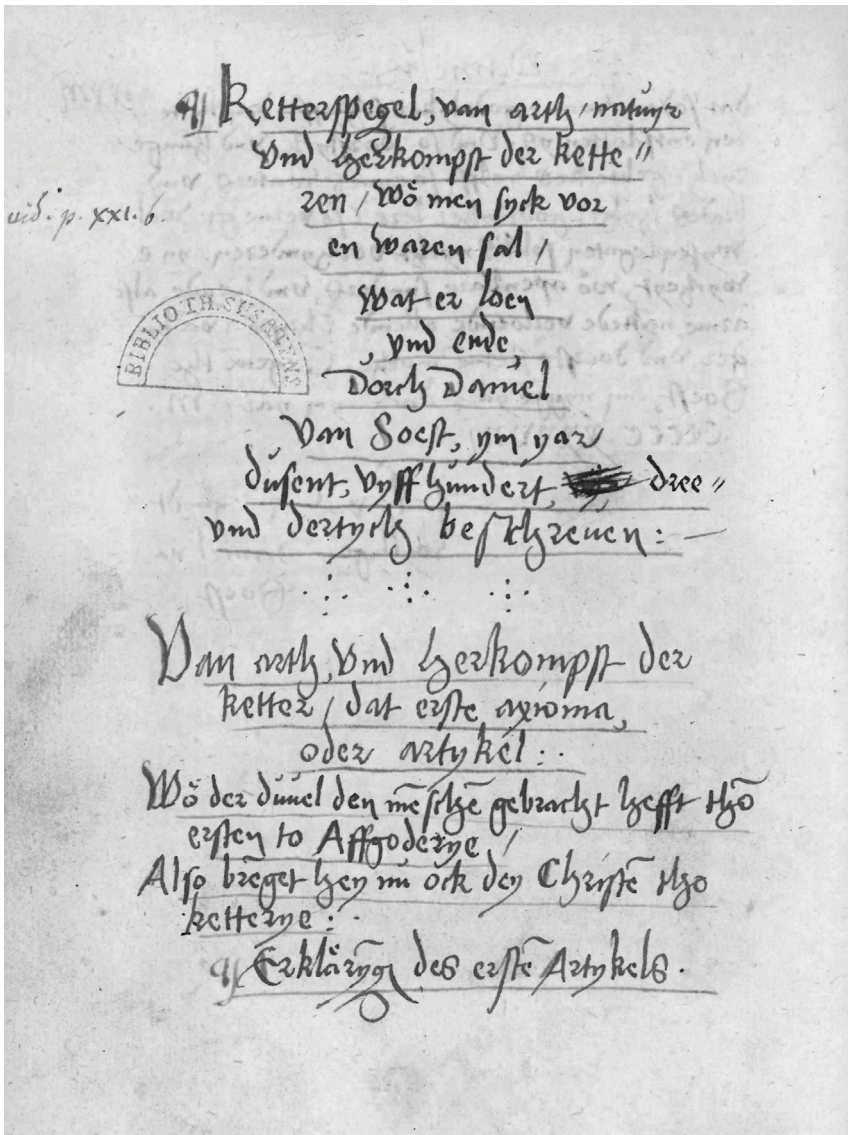 ¶ Ketterspegel, van arth / natuyr
vnd herkompst der kette〃
ren / wö men syck vor
en waren sal /
wat er loen
, vnd ende,
Dorch Daniel
van Soest, ym yar
dusent, vyffhundert, dree〃
vnd dertych beschreuen : —
vid. p. xxi. b.
BIBLIOTH. SUSATENS
Van arth, vnd herkompst der
ketter / dat erste axioma,
oder artykel : ·
Wö der duuel den mēschē gebracht hefft thō
ersten to Affgoderye /
Also brēget hey nu ock dey Christē tho
ketterye : ·
¶ Erklärȳg des erstē Artykels .